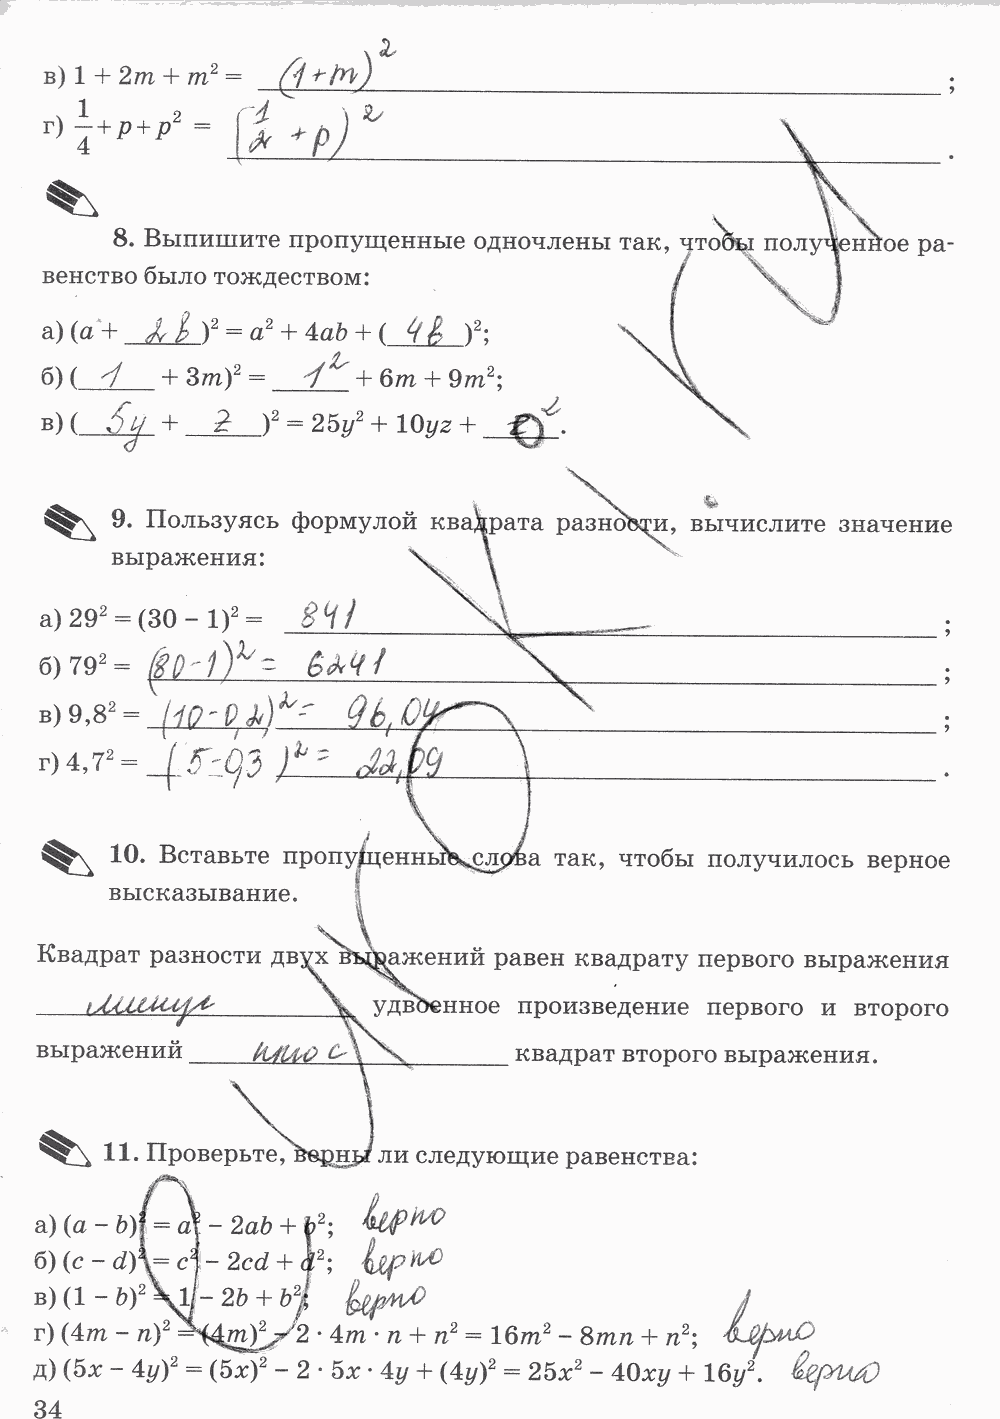 в) 1 + 2m + m² = (1+m)² ;
г) 1/4 + p + p² = (1/2 + p)² .
8. Выпишите пропущенные одночлены так, чтобы полученное ра-
венство было тождеством:
а) (a + 2b)² = a² + 4ab + (4b)²;
б) (1 + 3m)² = 1² + 6m + 9m²;
в) (5y + z)² = 25y² + 10yz + z².
9. Пользуясь формулой квадрата разности, вычислите значение
выражения:
а) 29² = (30 − 1)² = 841 ;
б) 79² = (80-1)² = 6241 ;
в) 9,8² = (10-0,2)² = 96,04 ;
г) 4,7² = (5-0,3)² = 22,09 .
10. Вставьте пропущенные слова так, чтобы получилось верное
высказывание.
Квадрат разности двух выражений равен квадрату первого выражения
минус удвоенное произведение первого и второго
выражений плюс квадрат второго выражения.
11. Проверьте, верны ли следующие равенства:
а) (a − b)² = a² − 2ab + b²; верно
б) (c − d)² = c² − 2cd + d²; верно
в) (1 − b)² = 1 − 2b + b²; верно
г) (4m − n)² = (4m)² − 2 · 4m · n + n² = 16m² − 8mn + n²; верно
д) (5x − 4y)² = (5x)² − 2 · 5x · 4y + (4y)² = 25x² − 40xy + 16y². верно
34